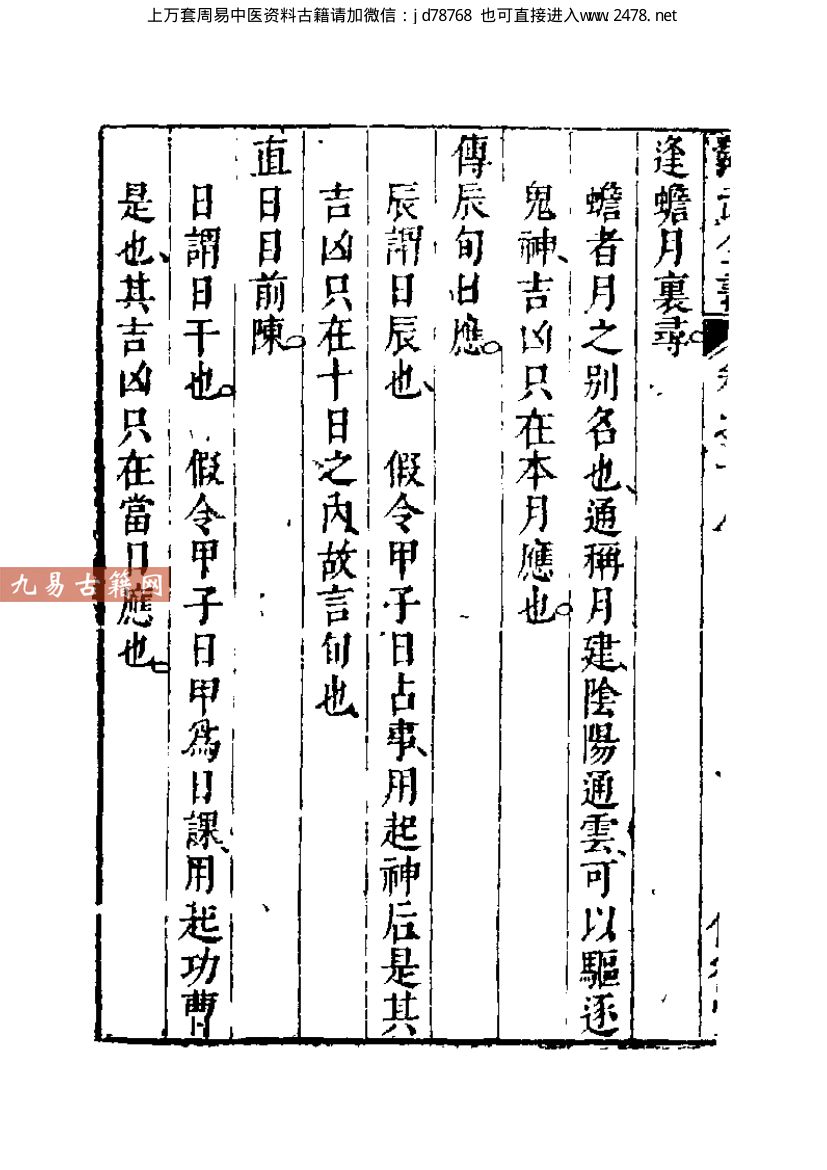 上万套周易中医资料古籍请加微信：jd78768 也可直接进入www.2478.net
逢蟾月裏尋。
蟾者月之别名也、通稱月建、陰陽通雲、可以驅逐
鬼神、吉凶只在本月應也。
傳辰旬日應。
辰謂日辰也、假令甲子日占事、用起神后是其
吉凶只在十日之內故言旬也
直日目前陳。
日謂日干也。假令甲子日甲爲日課、用起功曹
是也、其吉凶只在當日應也。
九易古籍网